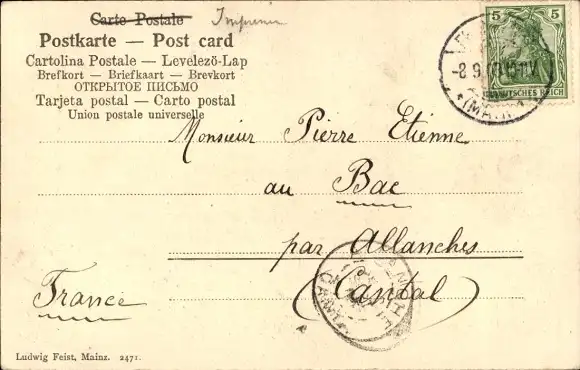 Carte Postale
Postkarte — Post card
Cartolina Postale — Levelező-Lap
Brefkort — Briefkaart — Brevkort
ОТКРЫТОЕ ПИСЬМО
Tarjeta postal — Carto postal
Union postale universelle
5 5
DEUTSCHES REICH
Monsieur Pierre Etienne
au Bac
par Allanches
(Cantal)
France
Ludwig Feist, Mainz. 2471.